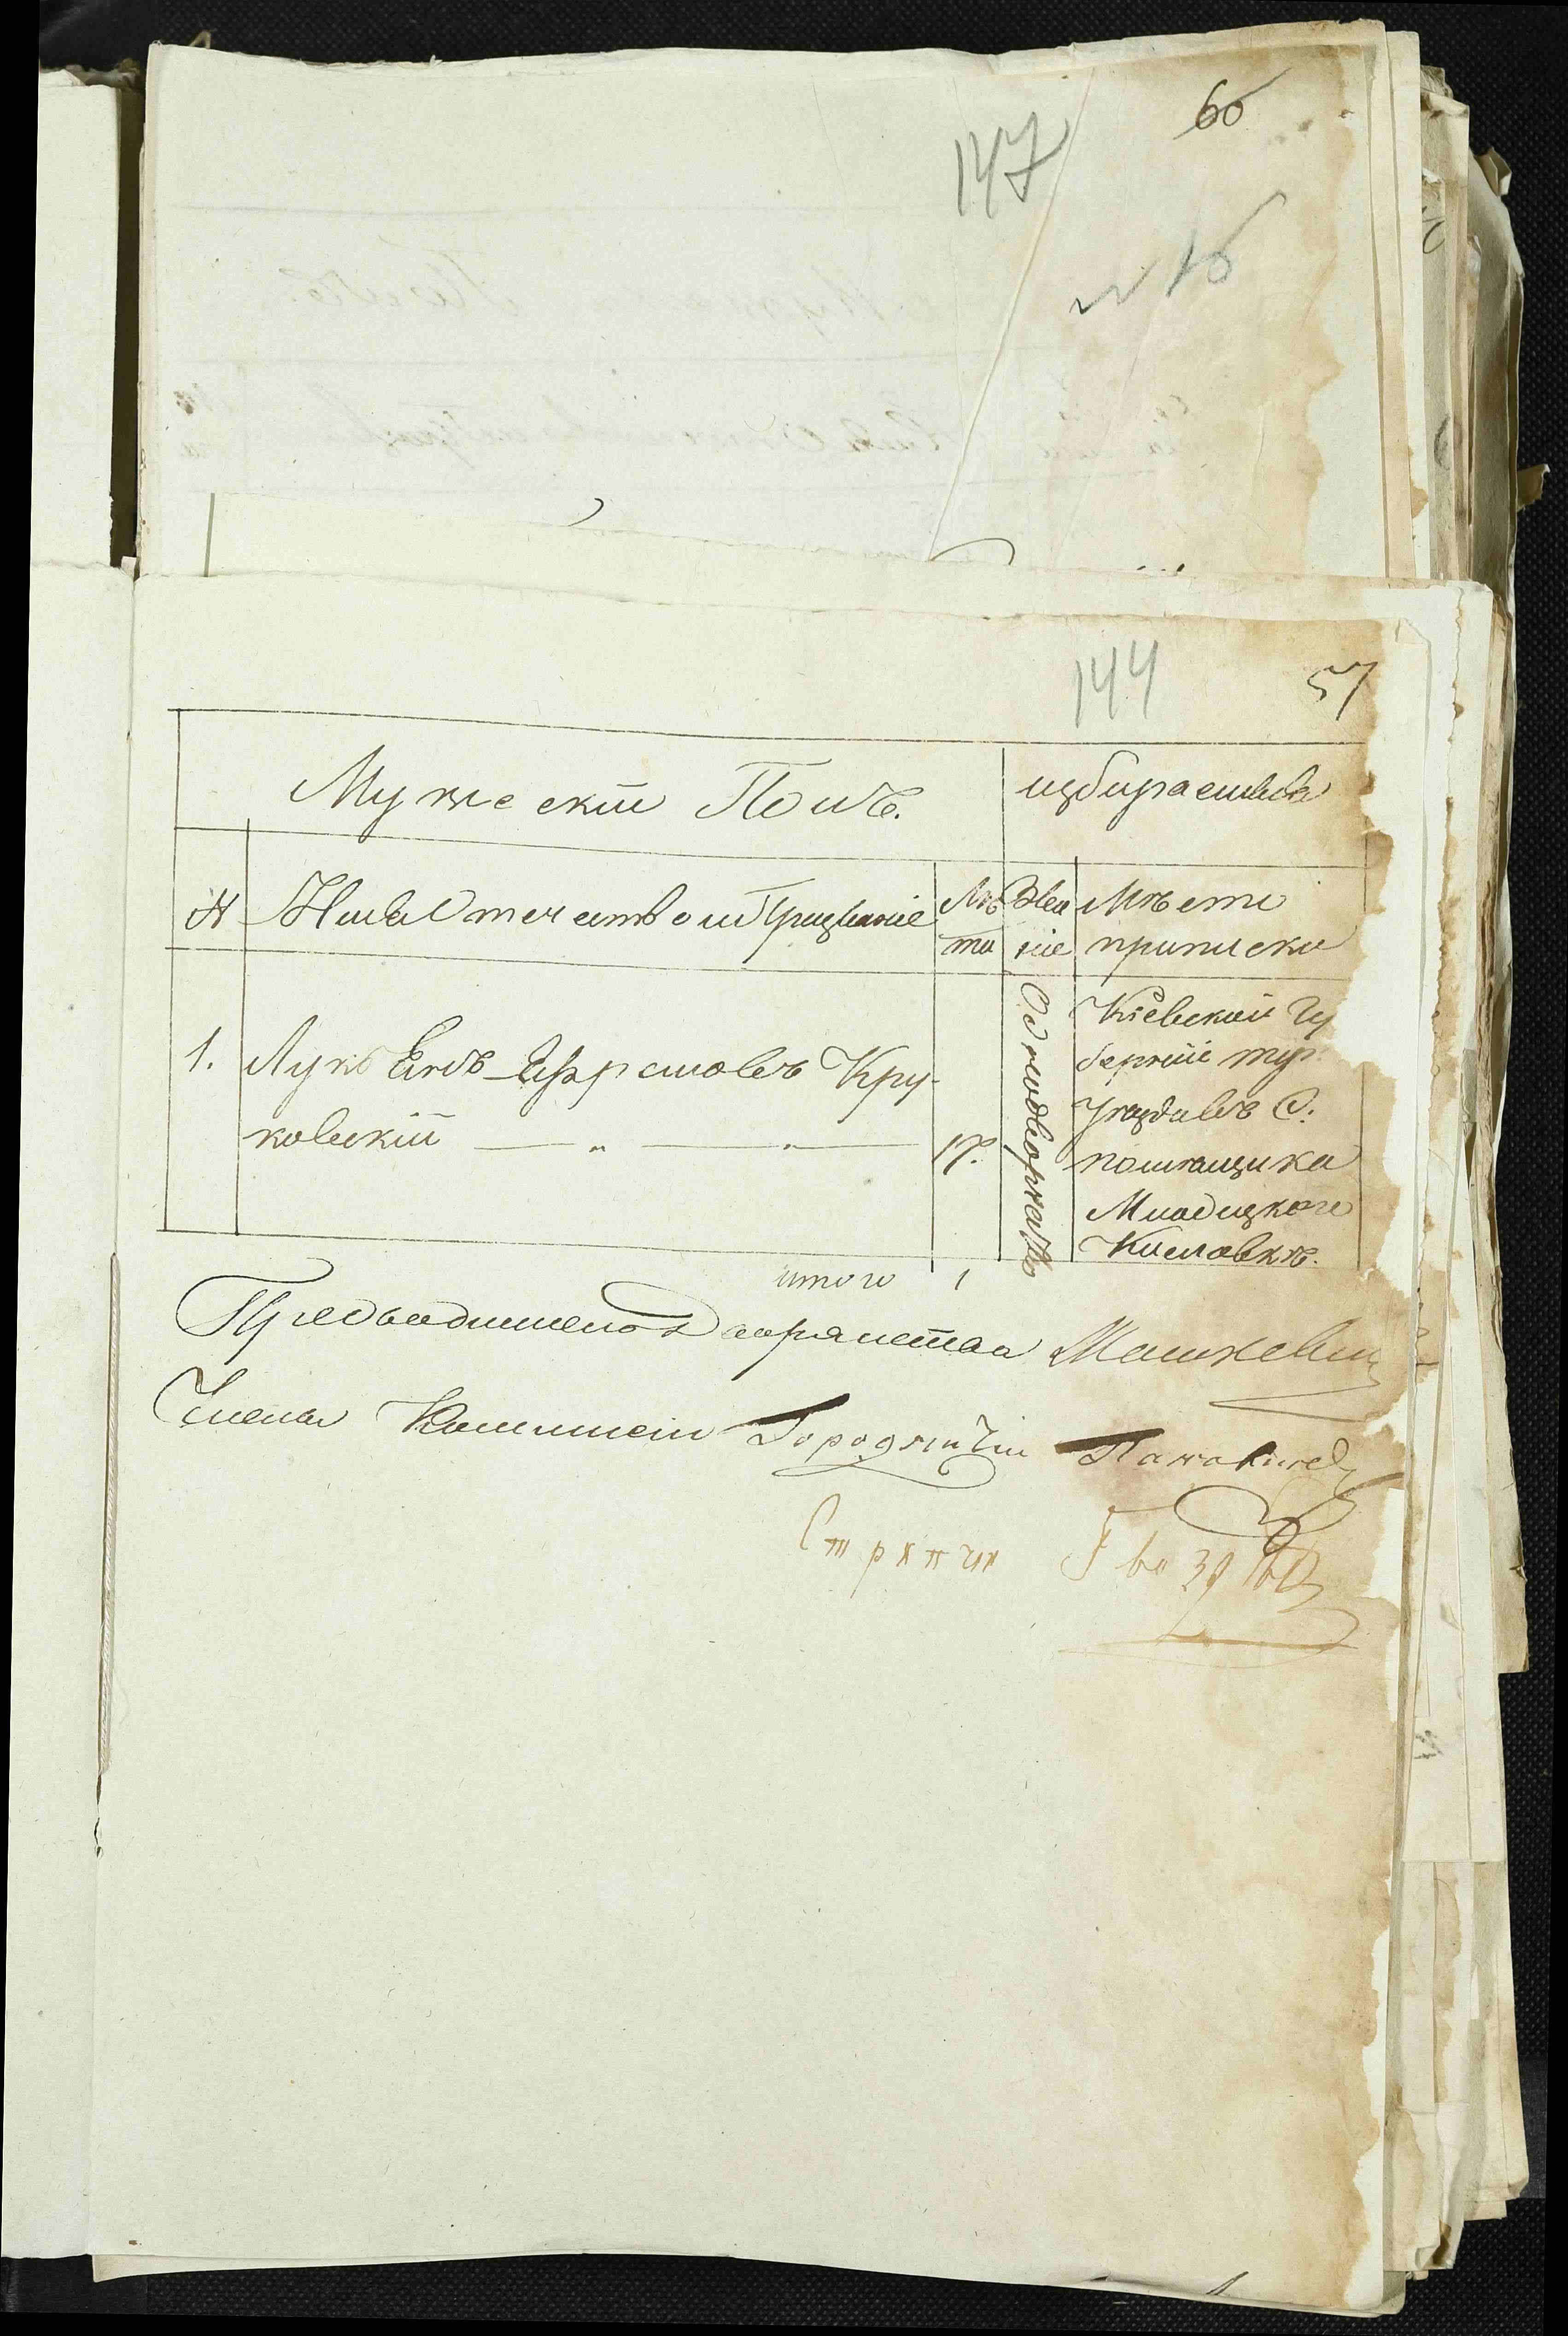 60
147
N 16
144
57
Мужескій Полъ.
избираемыя
N
Имя Отечество и Прозваніе
Лѣ
та
Зва
ніе
Мѣсто
приписки
1.
Лукъянъ Ефремовъ Кру-
ковскій
17.
Однодворкахъ
Кіевской Гу
берніи
Уѣзда въ С.
помѣщика
Младецкаго
Кисловкѣ.
итого 1
Предводитель Дворянства Машкевич
Члены Коммисіи Городничій
Стряпчій Гвоздев